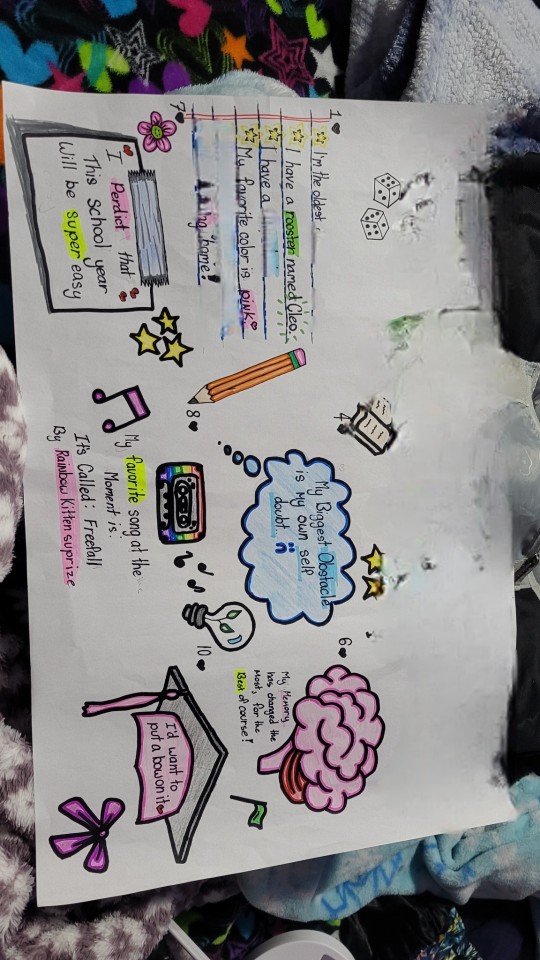 1
I'm the oldest.
I have a rooster named Cleo.
I have a
My favorite color is pink.
home!
4
My Biggest Obstacle
is My own self
doubt.
6
My Memory
has changed the
Most, for the
Best of course!
7
I Perdict that
This School year
Will be super easy
8
My favorite song at the
Moment is.
It's Called: Freefall
By Rainbow Kitten suprize
10
I'd want to
put a bow on it